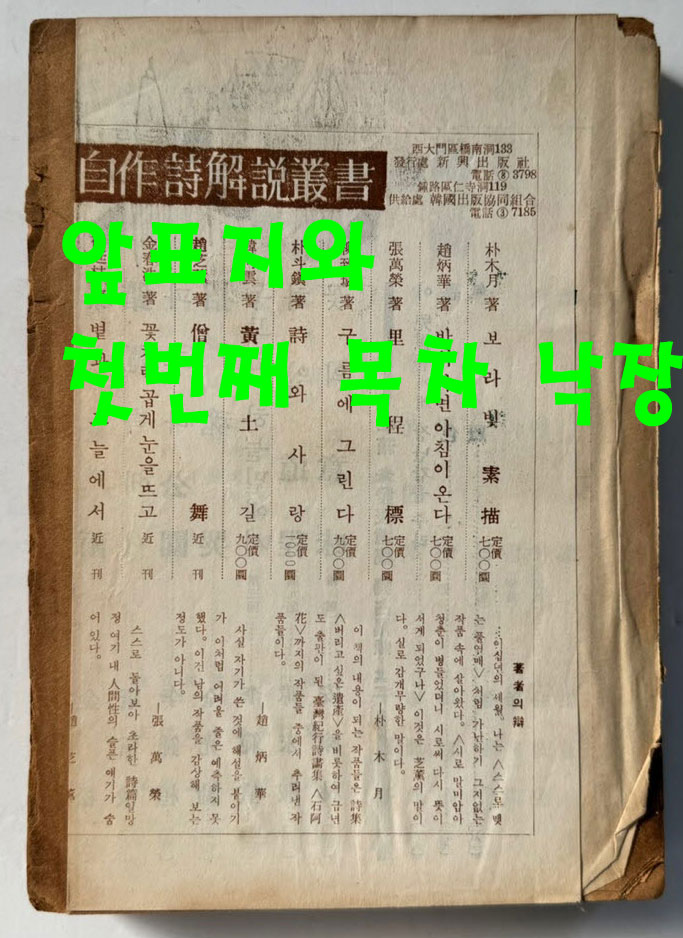 自作詩解説叢書
西大門區橋南洞133
發行處 新興出版社
電話⑧3798
鍾路區仁寺洞119
供給處 韓國出版協同組合
電話③7185
앞표지와
첫번째 목차 낙장
朴木月 著 보라빛 素描 定價 七〇〇圜
趙炳華 著 면아침이온다 定價 七〇〇圜
張萬榮 著 里程標 定價 七〇〇圜
著 구름에 그린다 定價 九〇〇圜
朴斗鎭 著 詩와 사랑 定價 一〇〇〇圜
雲 著 黃土길 定價 九〇〇圜
趙芝 著 僧舞 近刊
金春洙 著 곱게눈을뜨고 近刊
별 늘에서 近刊
著者의 辯
…이십년의 세월。나는 〈스스로 뱃
는 풀열매〉처럼 가난하기 그지없는
작품 속에 살아왔다。〈시로 말미암아
청춘이 병들었더니 시로써 다시 뜻이
서게 되었구나〉 이것은 芝薰의 말이
다。실로 감개무량한 말이다。
—朴木月
이 책의 내용이 되는 작품들은 詩集
〈버리고 싶은 遺産〉을 비롯하여 금년
도 출판이 된 臺灣紀行詩畵集 〈石阿
花〉까지의 작품들 중에서 추려낸 작
품들이다。
—趙炳華
사실 자기가 쓴 것에 해설을 붙이기
가 이처럼 어려울 줄은 예측하지 못
했다。이건 남의 작품을 감상해 보는
정도가 아니다。
—張萬榮
스스로 돌아보아 초라한 詩篇일망
정 여기 내 人間性의 슬픈 얘기가 숨
어 있다。
趙芝薰